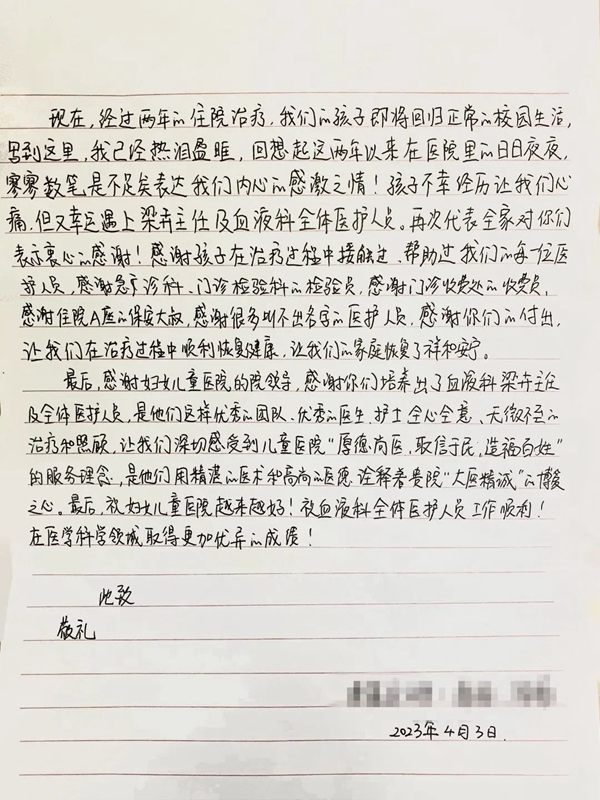 现在,经过两年的住院治疗,我们的孩子即将回归正常的校园生活,
写到这里,我已经热泪盈眶,回想起这两年以来在医院里的日日夜夜,
寥寥数笔是不足矣表达我们内心的感激之情!孩子不幸经历让我们心
痛,但又幸运遇上梁卉主任及血液科全体医护人员。再次代表全家对你们
表示衷心的感谢!感谢孩子在治疗过程中接触过、帮助过我们的每一位医
护人员,感谢急诊科、门诊检验科的检验员,感谢门诊收费处的收费员,
感谢住院A座的保安大叔,感谢很多叫不出名字的医护人员,感谢你们的付出,
让我们在治疗过程中顺利恢复健康,让我们的家庭恢复了祥和安宁。
最后,感谢妇女儿童医院的院领导,感谢你们培养出了血液科梁卉主任
及全体医护人员,是他们这样优秀的团队、优秀的医生、护士全心全意、无微不至的
治疗和照顾,让我们深切感受到儿童医院“厚德尚医,取信于民,造福百姓”
的服务理念,是他们用精湛的医术和高尚的医德诠释着贵院“大医精诚”的博爱
之心。最后,祝妇女儿童医院越来越好!祝血液科全体医护人员工作顺利!
在医学科学领域取得更加优异的成绩!
此致
敬礼
2023年4月3日.